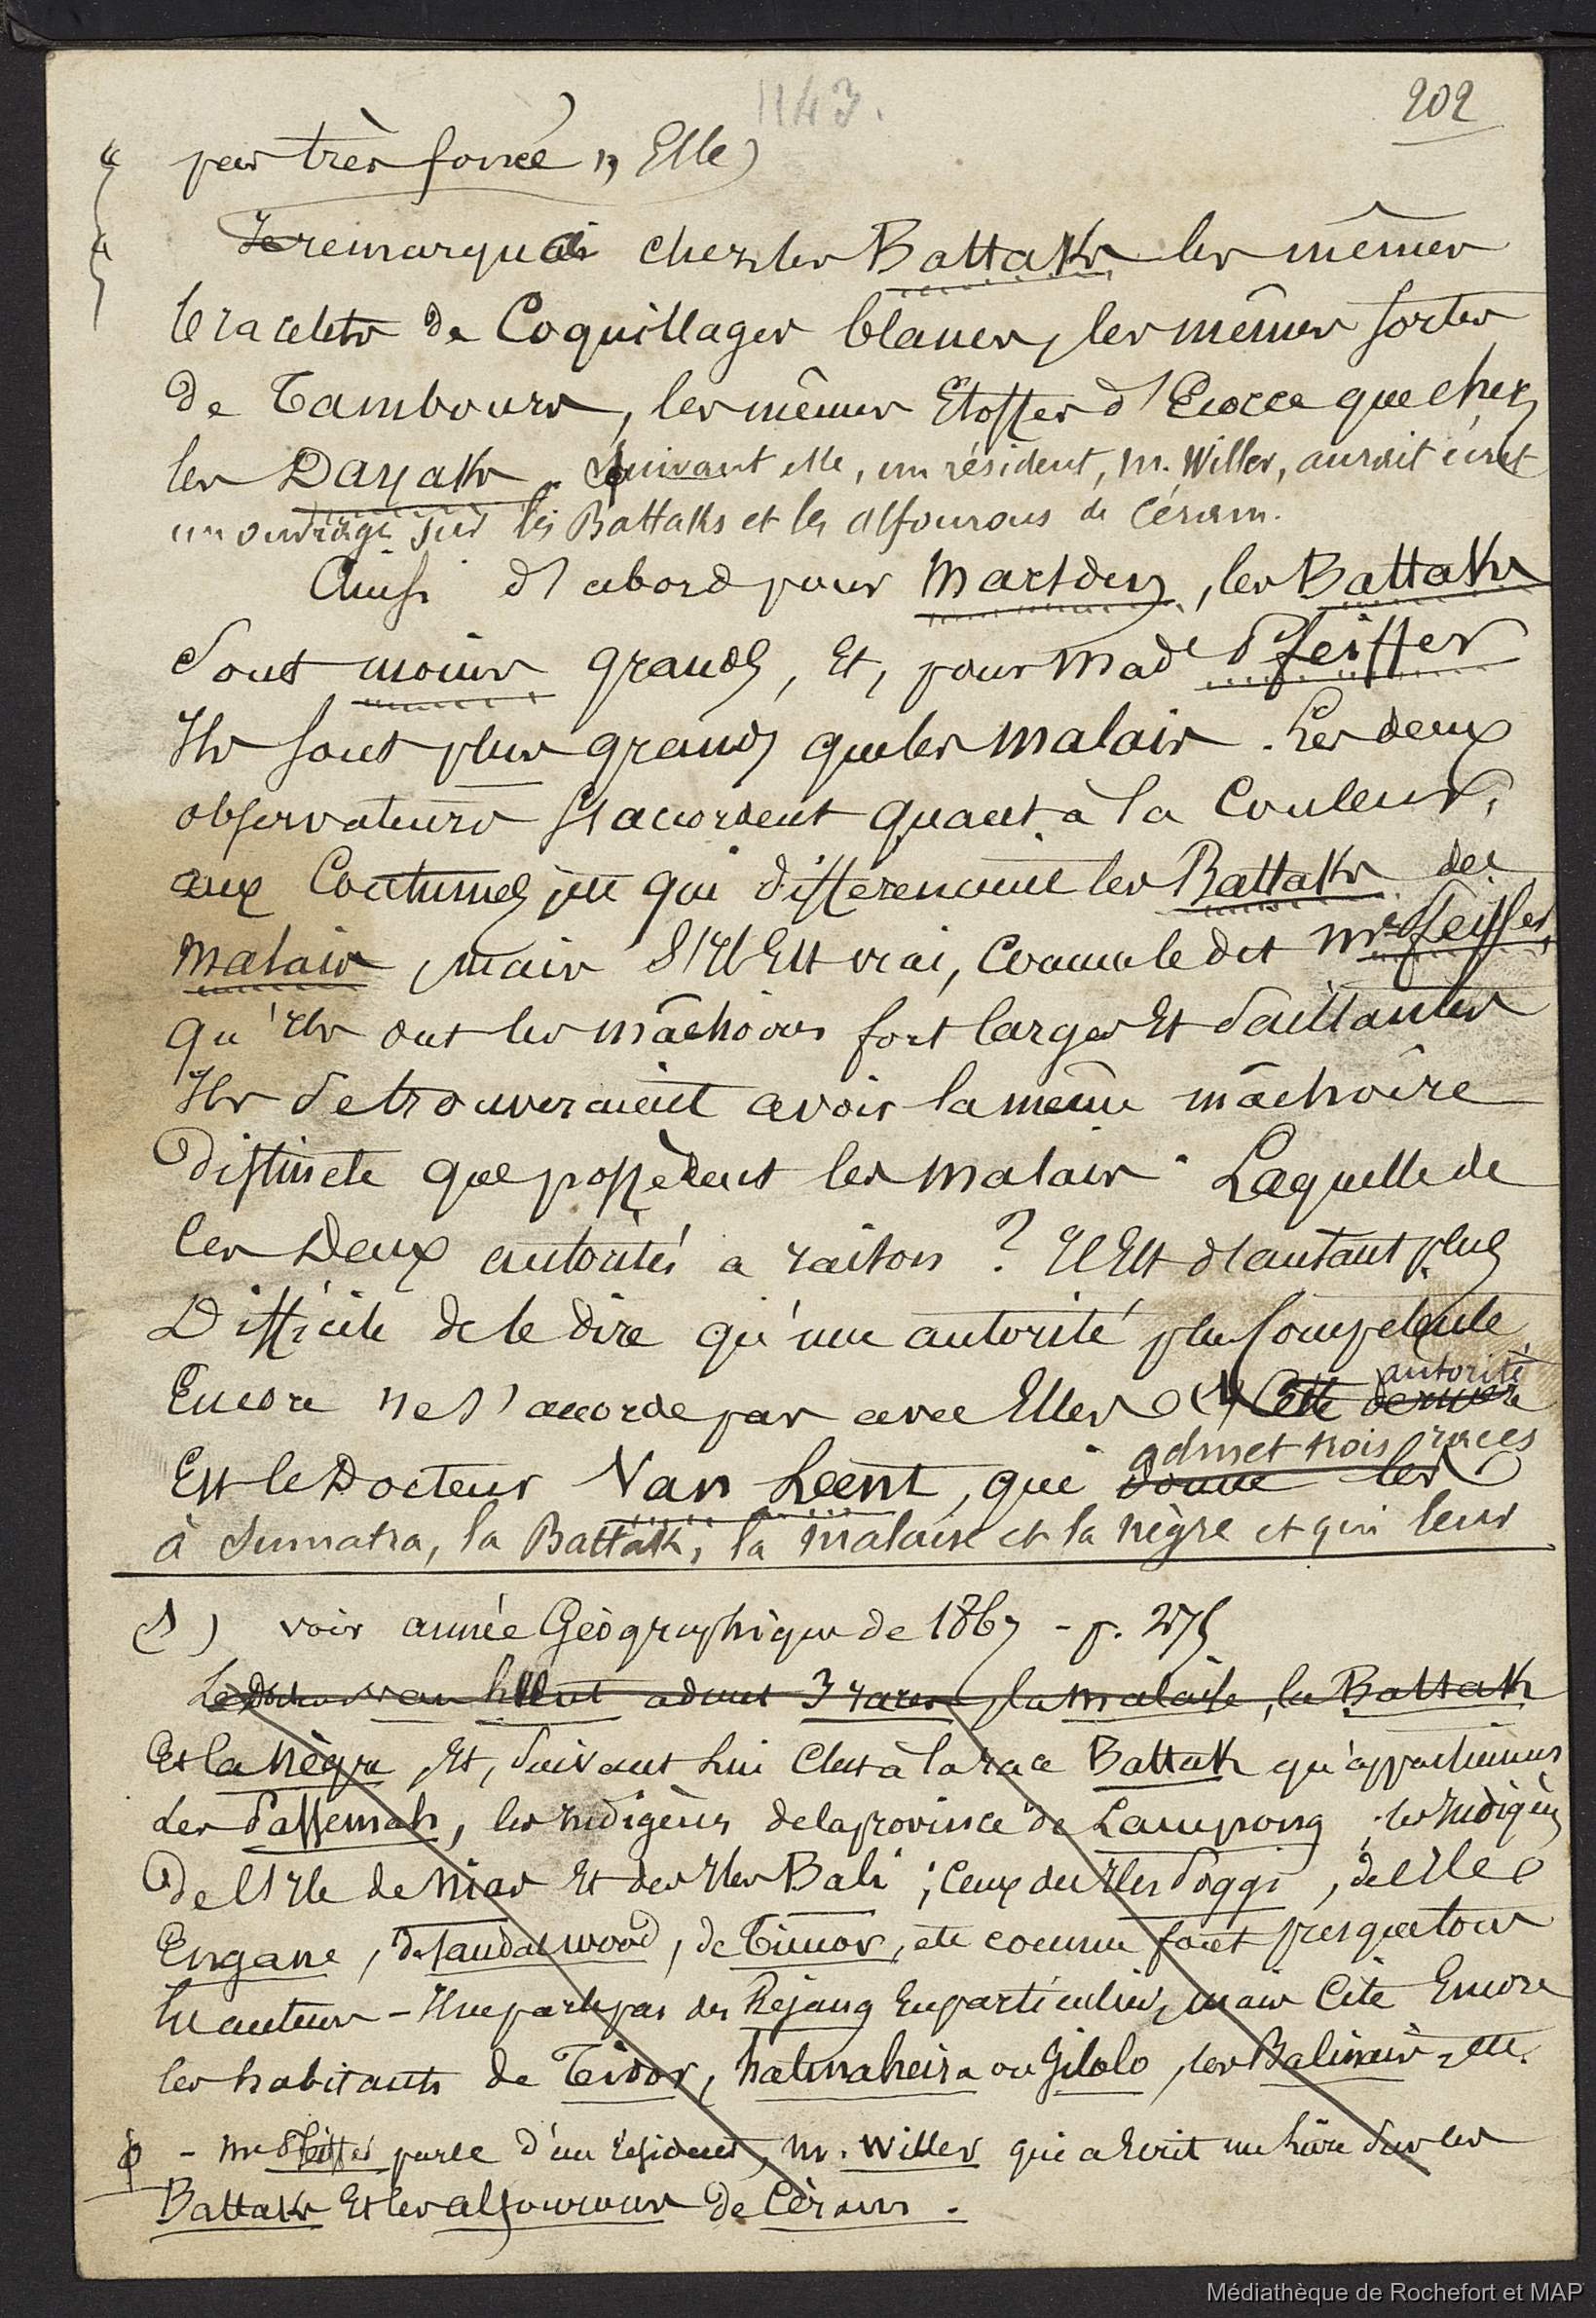 1143.
202
« pas très foncé », Elle
« Je remarquai chez les Battaks les mêmes
bracelets de Coquillages blancs, les mêmes sortes
de Tambours, les mêmes Etoffes d'Ecorce que chez
les Dayaks. Suivant elle, un résident, M. Willer, aurait écrit
un ouvrage sur les Battaks et les alfourous de Céram.
Ainsi d'abord pour Marsden, les Battaks
sont moins grands, Et, pour Made Pfeiffer
Ils sont plus grands que les malais. Les deux
observateurs s'accordent quant à la Couleur,
aux Coutumes, qui différencient les Battaks des
Malais, mais s'Il Est vrai, Comme le dit Me Pfeiffer,
qu'Ils ont les mâchoires fort larges Et saillantes
Ils se trouveraient avoir la même mâchoire
distincte que possèdent les malais. Laquelle de
ces Deux autorités a raison ? Il Est d'autant plus
Difficile de le dire qu'une autorité plus Compétente
Encore ne s'accorde pas avec Elles (1) Cette dernière autorité
Est le Docteur Van Leent, qui donne les admet trois races
à Sumatra, la Battak, la malaise et la nègre et qui leur
(1) voir année Géographique de 1867 - p. 275
Le Docteur van Leent admet 3 races, la malaise, la Battak
Et la Nègre, Et, suivant Lui C'est à la race Battak qu'appartiennent
les Passemah, les Indigènes de la province de Lampong, les Indigènes
De l'Ile de Nias Et des Iles Bali ; Ceux des Iles Poggi, de l'Ile
Engane, de Sandalwood, de Timor, etc comme font presque tous
les auteurs - Il ne parle pas des Rejang En particulier, mais Cite Encore
les habitants de Tidor, halmaheira ou Gilolo, les Balinais, etc.
φ - Me Pfeiffer parle d'un Résident, M. Willer qui a Ecrit un livre sur les
Battaks Et les alfourous de Céram.
Médiathèque de Rochefort et MAP